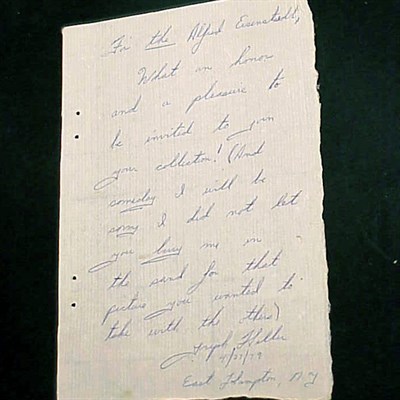 For the Alfred Eisenstaedt,
What an honor
and a pleasure to
be invited to join
your collection! (And
someday I will be
sorry I did not let
you bury me in
the sand for that
picture you wanted to
take with the
Joseph Heller
East Hampton, NY